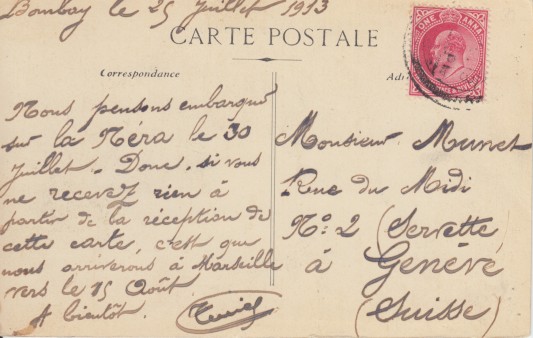 Bombay le 25 Juillet 1913
CARTE POSTALE
Correspondance
ONE ANNA
Nous pensons embarquer
sur la Néra le 30
Juillet. Donc, si vous
ne recevez rien à
partir de la réception de
cette carte, c'est que
nous arriverons à Marseille
vers le 15 Août
A bientôt.
Monsieur Munet
Rue du Midi
No: 2 (Servette
à Genève
(Suisse)